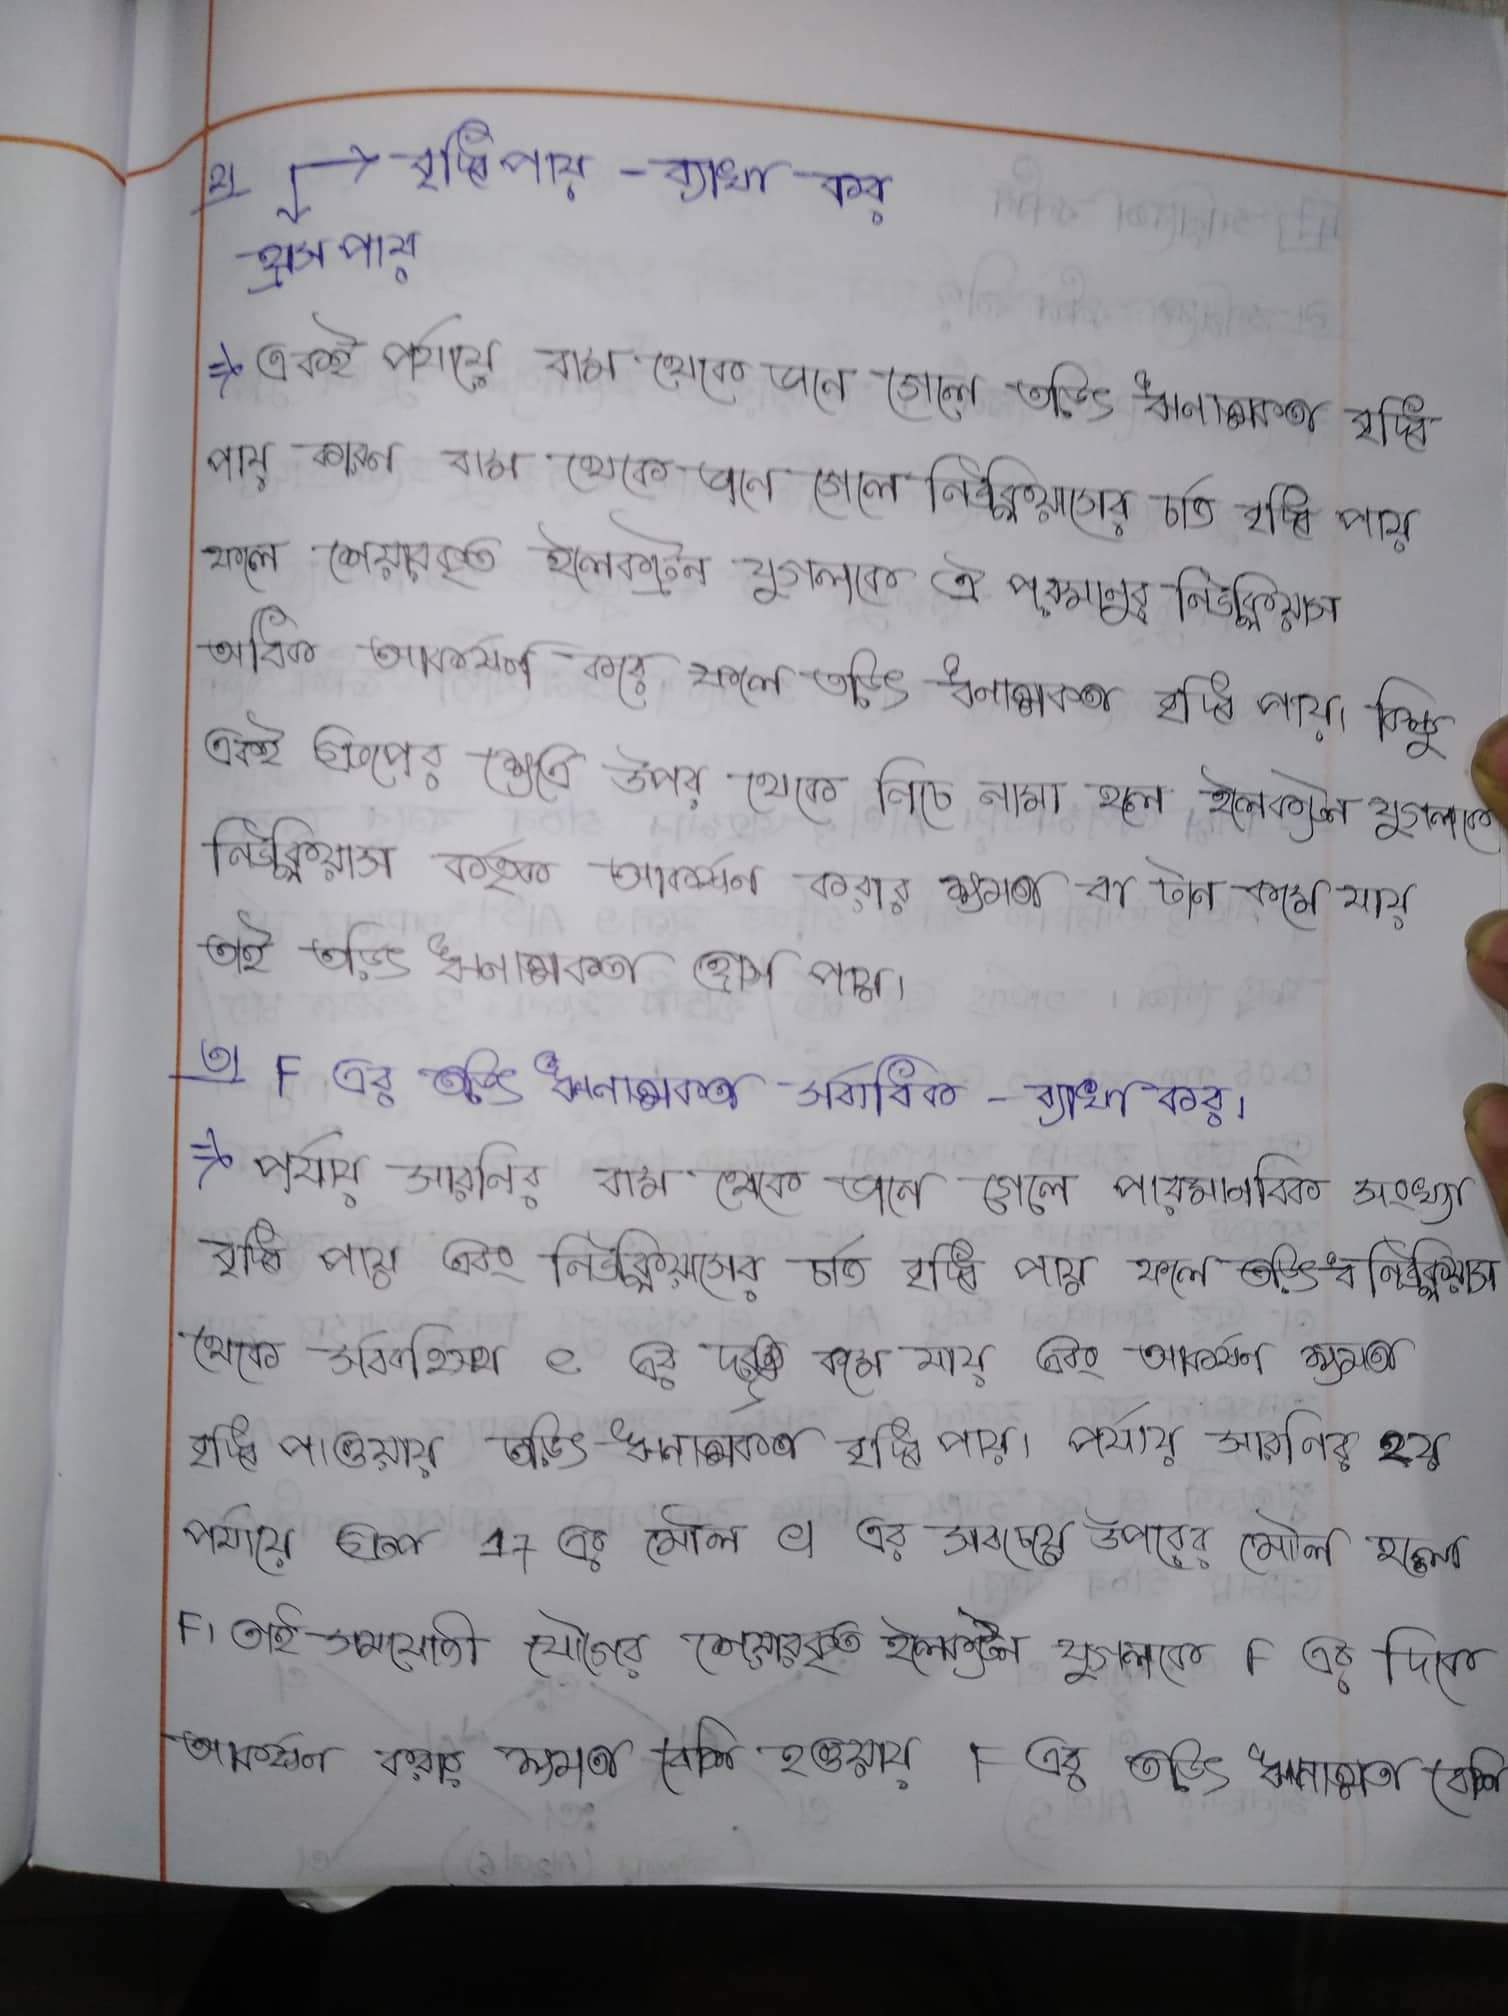 ২। → বৃদ্ধি পায় - ব্যাখা কর
হ্রাস পায়
⇒ একই পর্যায়ে বাম থেকে ডানে গেলে তড়িৎ ঋনাত্মকতা বৃদ্ধি
পায় কারন বাম থেকে ডানে গেলে নিউক্লিয়াসের চার্জ বৃদ্ধি পায়
ফলে শেয়ারকৃত ইলেকট্রন যুগলকে ঐ পরমানুর নিউক্লিয়াস
অধিক আকর্ষন করে ফলে তড়িৎ ঋনাত্মকতা বৃদ্ধি পায়। কিন্তু
একই গ্রুপের ক্ষেত্রে উপর থেকে নিচে নামা হলে ইলেকট্রন যুগলকে
নিউক্লিয়াস কর্তৃক আকর্ষন করার ক্ষমতা বা টান কমে যায়
তাই তড়িৎ ঋনাত্মকতা হ্রাস পায়।
৩। F এর তড়িৎ ঋনাত্মকতা সর্বাধিক - ব্যাখা কর।
⇒ পর্যায় সারনির বাম থেকে ডানে গেলে পারমানবিক সংখ্যা
বৃদ্ধি পায় এবং নিউক্লিয়াসের চার্জ বৃদ্ধি পায় ফলে নিউক্লিয়াস
থেকে সর্ববহিঃস্থ e এর দূরত্ব কমে যায় এবং আকর্ষন ক্ষমতা
বৃদ্ধি পাওয়ায় তড়িৎ ঋনাত্মকতা বৃদ্ধি পায়। পর্যায় সারনির ২য়
পর্যায়ে গ্রুপ 17 এর মৌল এর সবচেয়ে উপরের মৌল হলো
F। তাই সমযোজী যৌগের শেয়ারকৃত ইলেকট্রন যুগলকে F এর দিকে
আকর্ষন করার ক্ষমতা বেশি হওয়ায় F এর তড়িৎ ঋনাত্মতা বেশি